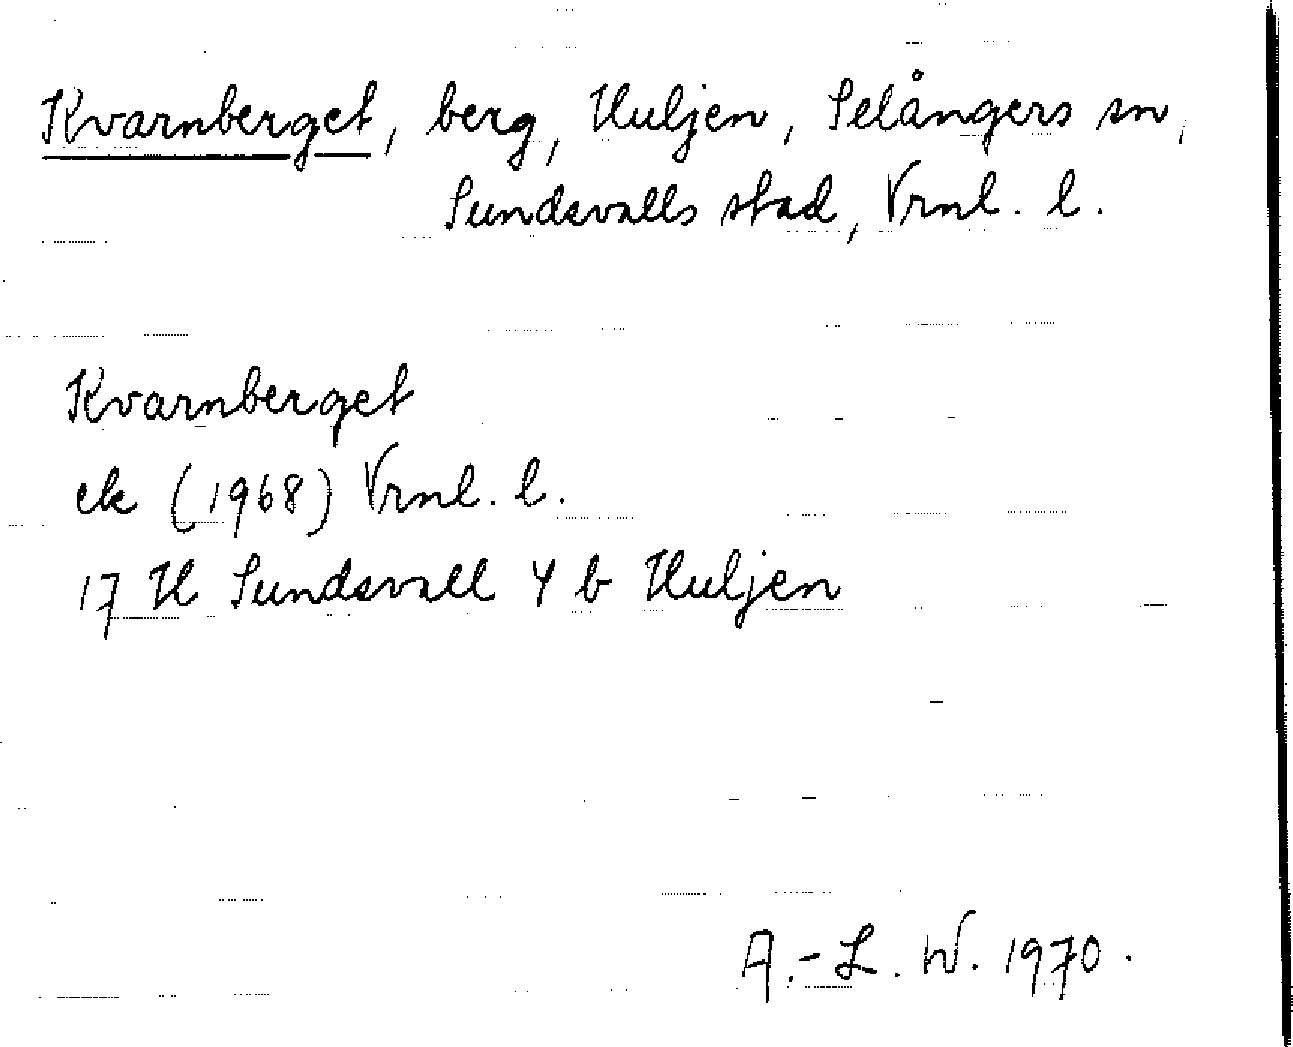 Kvarnberget, berg, Huljen, Selångers sn,
Sundsvalls stad, Vrnl. l.
Kvarnberget
ek (1968) Vrnl. l.
17 H Sundsvall 4 b Huljen
A.-L. W. 1970.